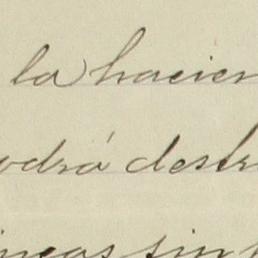 la hacien
odrá destr
incas sin